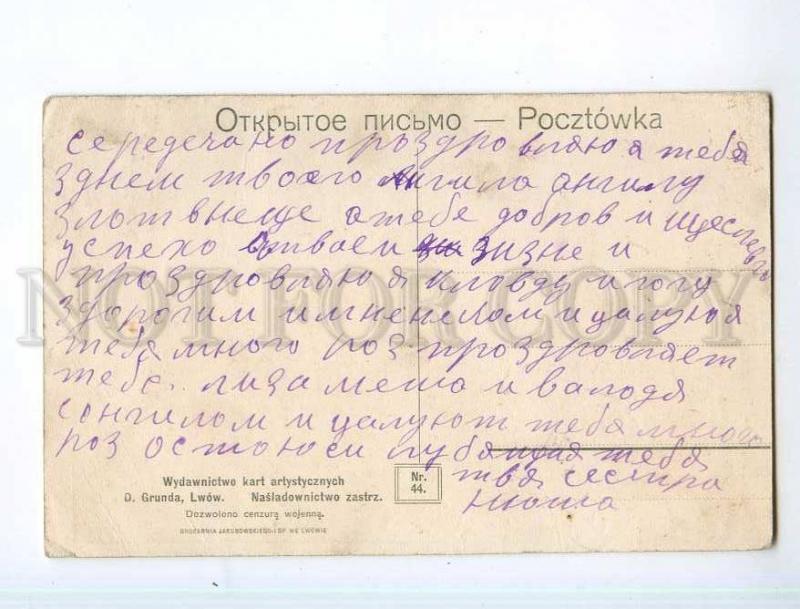 Открытое письмо — Pocztówka
середечано проздровляю я тебя
з днем твоего ангила ангилу
злот внеще а тебе добров и щеслевы
успехо в твоем зизне и
проздровляю я Клавду и гогу
здорогим имненелом и цалуюя
тебя много роз проздровляет
тебе. лиза меша и валодя
сонгилом и цалуют тебя много
роз остоюси лубящия тебя
твя сестра
Нюша
Wydawnictwo kart artystycznych
D. Grunda, Lwów. Naśladownictwo zastrz.
Dozwolono cenzurą wojenną.
DRUKARNIA JAKUBOWSKIEGO I SP. WE LWOWIE
Nr.
44.
NOT FOR COPY